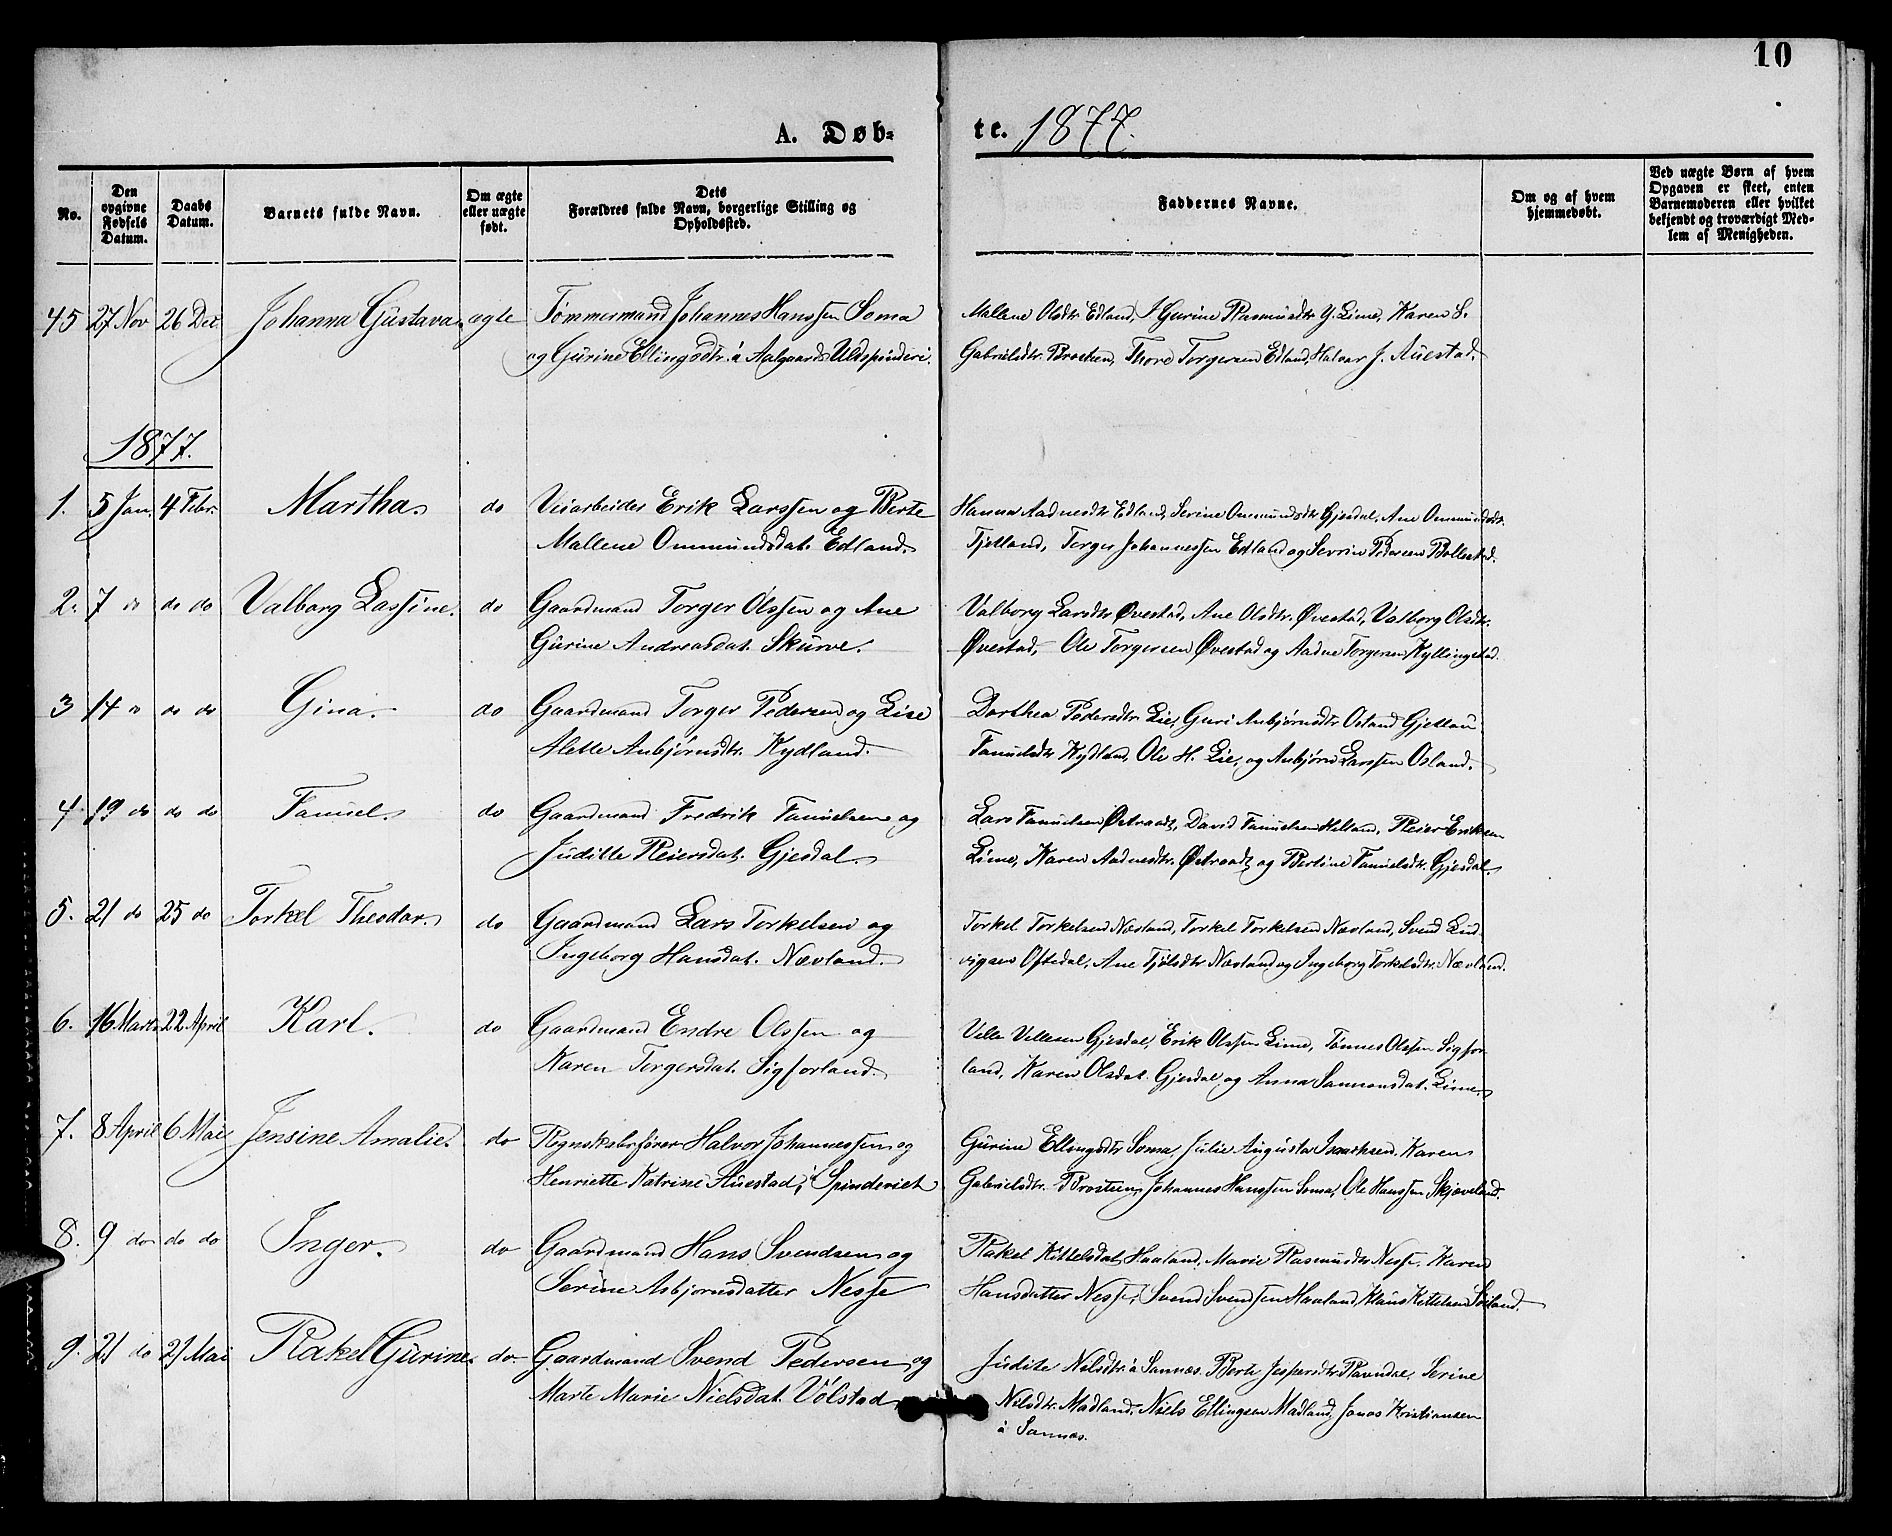 10
A. Døb-
te. 1877.
No.
Den opgivne Fødsels Datum.
Daabs Datum.
Barnets fulde Navn.
Om ægte eller uægte født.
Dets Forældres fulde Navn, borgerlige Stilling og Opholdssted.
Faddernes Navne.
Om og af hvem hjemmedøbt.
Ved uægte Børn af hvem Opgaven er skeet, enten Barnemoderen eller hvilket bekjendt og troværdigt Medlem af Menigheden.
45 27 Nov 26 Dec. Johanna Gustava. ægte Tømmermand Johannes Hanssen Soma
og Gurine Ellingsdtr. á Aalgaards Uldspinderi.
Mallene Olsdtr Edland, Gurine Rasmusdtr Y. Lime, Karen S.
Gabrielsdtr. Brosteen, Thore Torgersen Edland, Halvar J. Auestad.
1877.
1. 5 Jan. 4 Febr. Martha. do Veiarbeider Erik Larssen og Berte
Mallene Ommundsdat. Edland.
Hanna Aadnesdtr Edland, Serine Ommundsdtr Gjesdal, Ane Ommundsdtr.
Tjetland, Torger Johannessen Edland og Sevrin Pedersen Bollestad.
2. 7 do do do Valborg Lassine. do Gaardmand Torger Olssen og Ane
Gurine Andreasdat. Skurve.
Valborg Larsdtr Øvestad, Ane Olsdtr. Øvestad, Valborg Olsdtr.
Øvestad, Ole Torgersen Øvestad og Aadne Torgersen Kyllingstad.
3 14 do do do Gina. do Gaardmand Torger Pedersen og Lise
Alette Asbjørnsdtr. Kydland.
Dorthea Pedersdtr. Lie, Guri Asbjørnsdtr Osland
Fanuelsdtr Kydland, Ole H. Lie, og Asbjørn Larssen Osland.
4. 19 do do do Fanuel. do Gaardmand Fredrik Fanuelsen og
Juditte Reiersdat. Gjesdal.
Lars Fanuelsen Østraadt, David Fanuelsen Helland, Reier Eriksen
Lime, Karen Aadnesdtr. Østraadt og Bertine Fanuelsdtr. Gjesdal.
5. 21 do 25 do Torkel Theodor. do Gaardmand Lars Torkelsen og
Ingeborg Hansdat. Nævland.
Torkel Torkelsen Nævland, Torkel Torkelsen Nævland, Svend Lud-
vigsen Oftedal, Ane Nævland og Ingeborg Torkelsdtr. Nævland.
6. 16 Marts 22 April Karl. do Gaardmand Endre Olssen og
Karen Torgersdat. Sigforland.
Velle Vellesen Gjesdal, Erik Olssen Lime, Tønnes Olssen Sigfor-
land, Karen Olsdat. Gjesdal og Anna Samsonsdat. Lime.
7. 8 April 6 Mai Jensine Amalie. do Regnskabsfører Halvor Johannessen og
Henriette Katrine Auestad, i Spinderiet
Gurine Ellingsdtr Soma, Julie Augusta Isachsen, Karen
Gabrielsdtr. Brosteen, Johannes Hanssen Soma, Ole Hanssen Skjæveland.
8. 9 do do do Inger. do Gaardmand Hans Svendsen og
Serine Asbjørnsdatter Nesse
Rakel Kittelsdat. Haaland, Marie Rasmusdtr Nesse, Karen
Hansdatter Nesse, Svend Svendsen Haaland, Klaus Kittelsen Søiland.
9. 21 do 21 Mai Rakel Gurine. do. Gaardmand Svend Pedersen og
Marte Marie Nielsdat. Vølstad
Judite Nilsdtr. á Sannæs, Berte Jespersdtr Ravndal, Serine
Nilsdtr. Madland, Niels Ellingsen Madland, Jonas Kristiansen
á Sannæs.